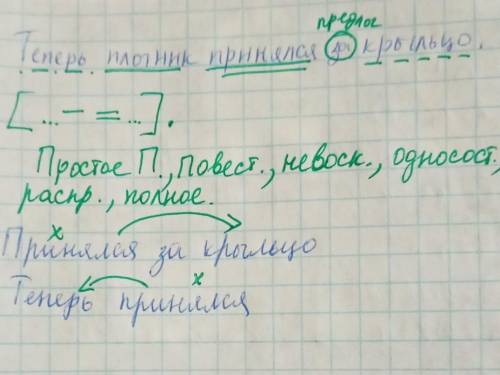 предлог
Теперь плотник принялся за крыльцо.
[...− = ...].
Простое П., повест., невоск., односост.,
распр., полное.
х
Принялся за крыльцо
х
Теперь принялся